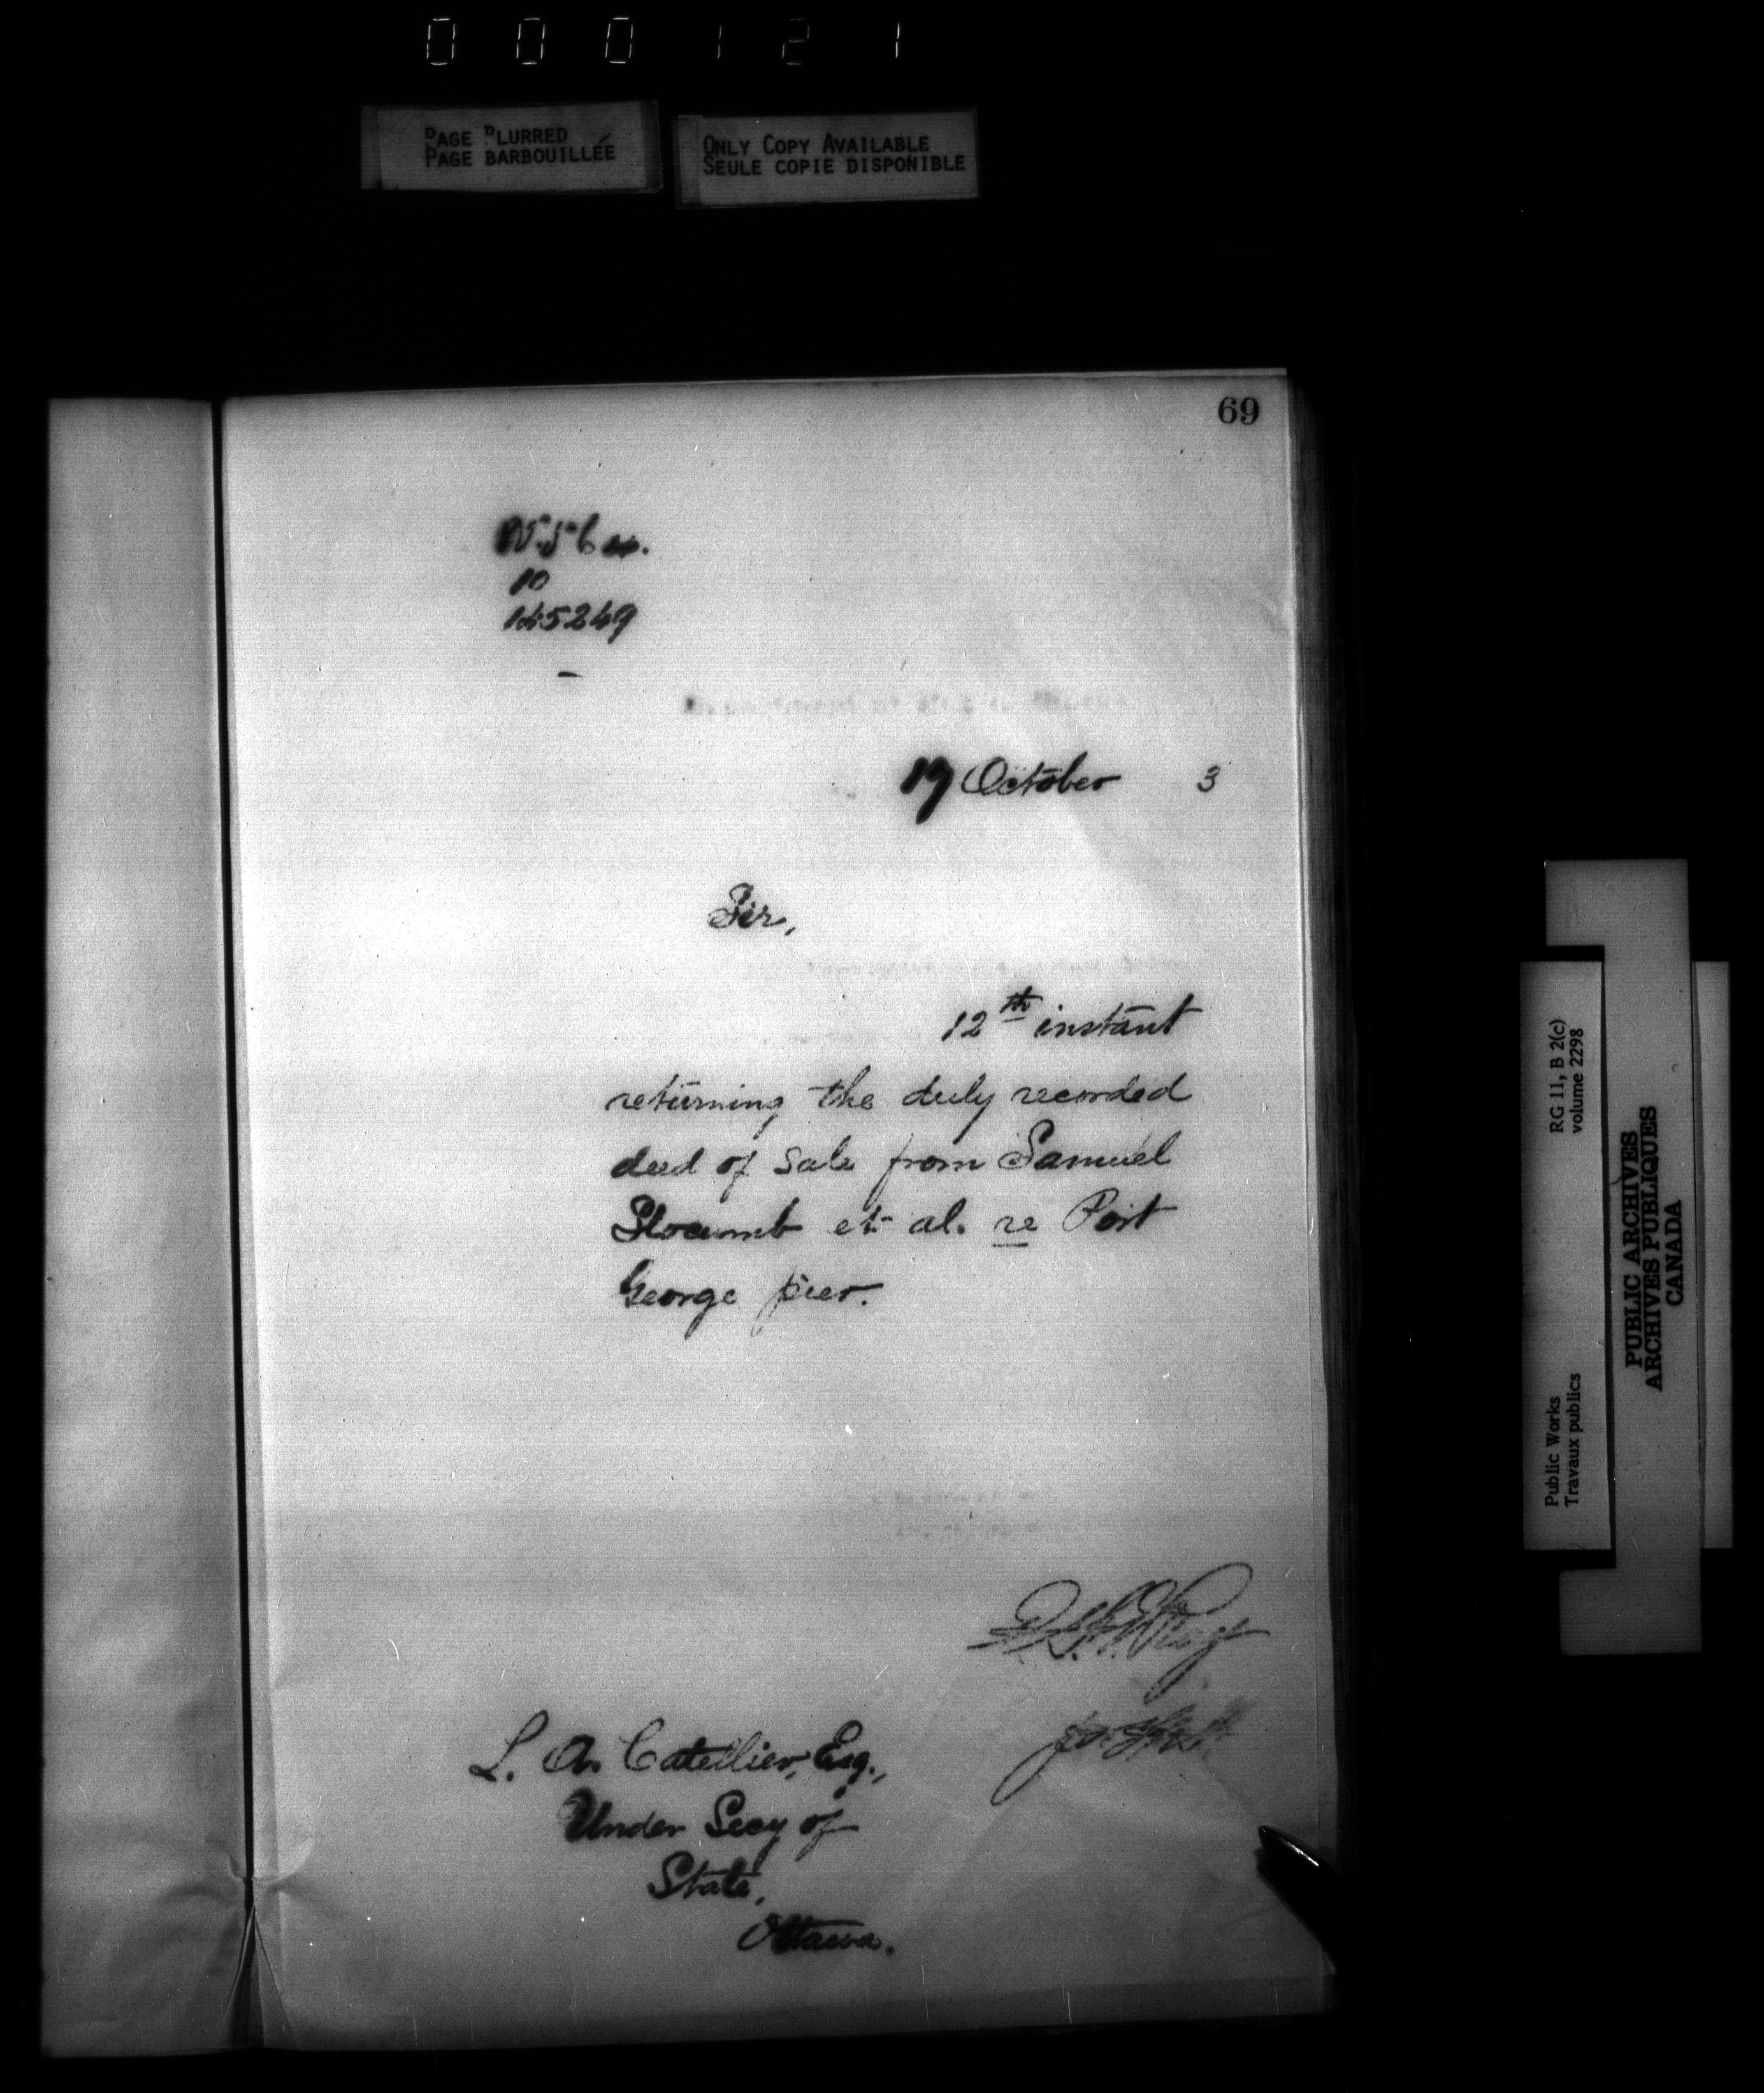 000121
PAGE BLURRED
PAGE BARBOUILLÉE
ONLY COPY AVAILABLE
SEULE COPIE DISPONIBLE
69
10
145249
19 October 3
Sir,
12th instant
returning the duly recorded
deed of sale from Samuel
Slocumb et al. re Port
George pier.
L. A. Catellier, Esq.,
Under Secy of
State,
Ottawa.
RG 11, B 2(c)
volume 2298
Public Works
Travaux publics
PUBLIC ARCHIVES
ARCHIVES PUBLIQUES
CANADA